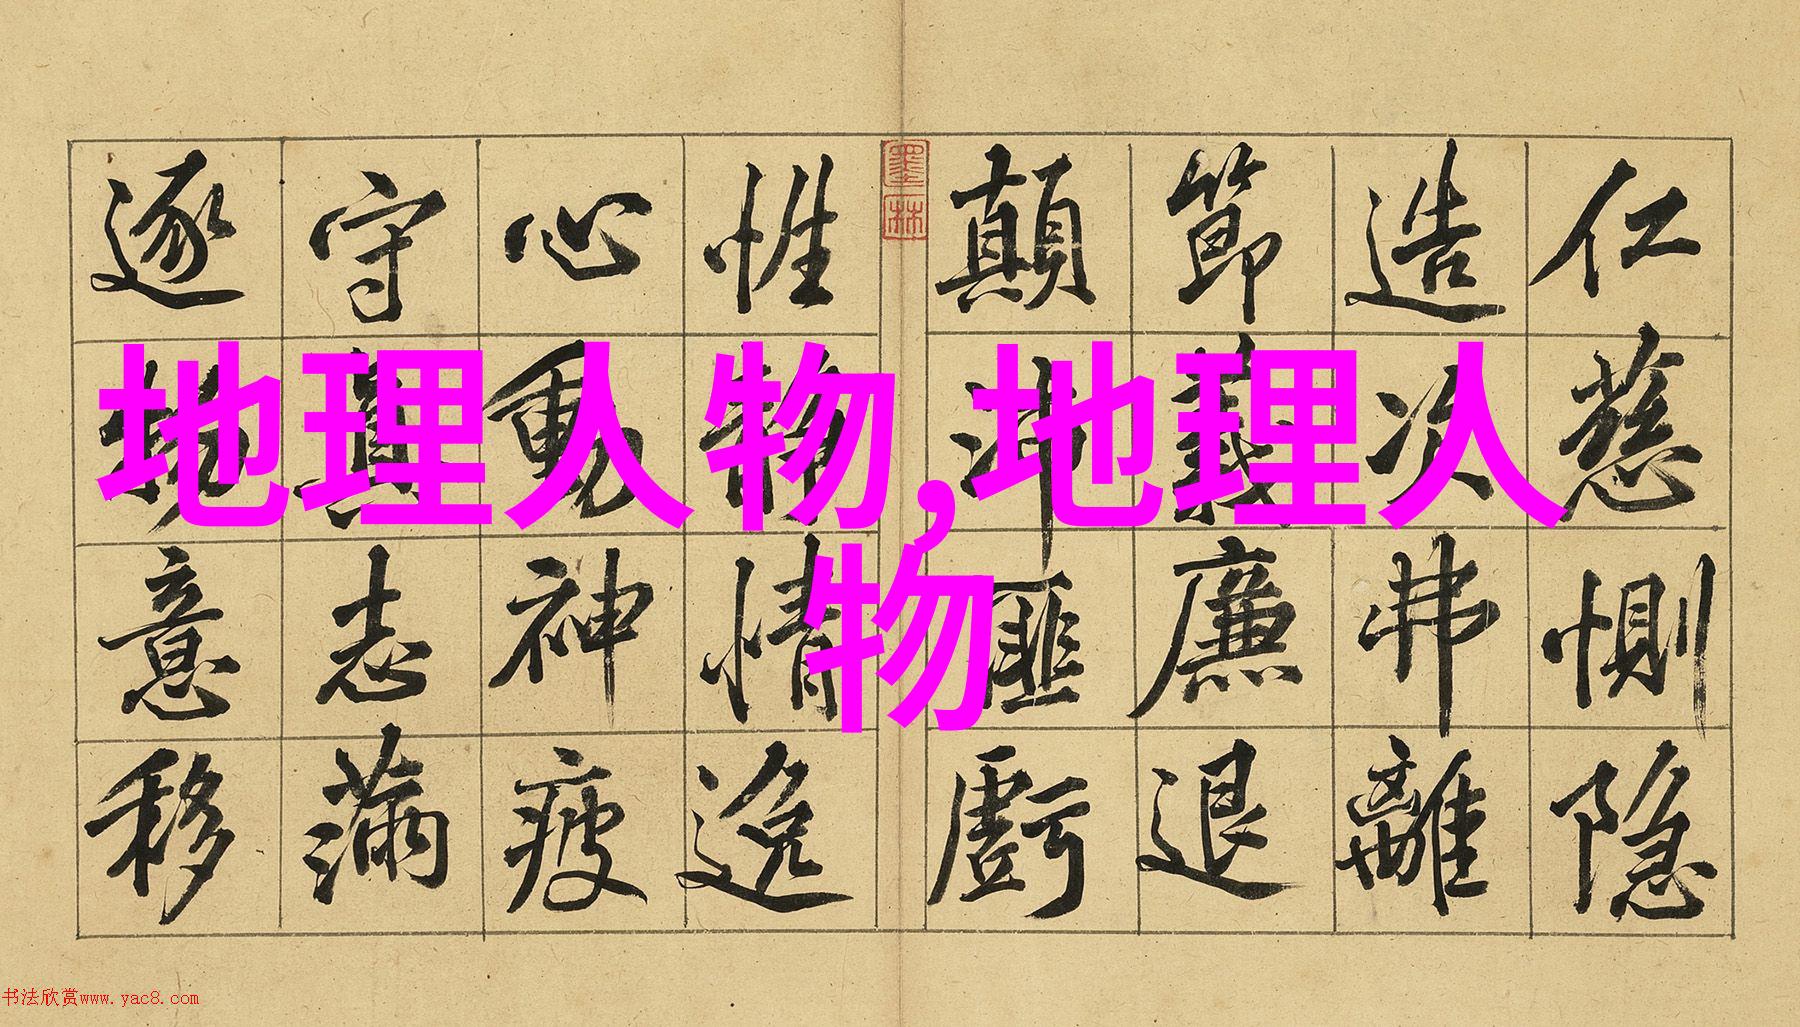 地理人物,地理人
物
仁慈惻隐
造次弗離
節義廉退
顛沛匪虧
性静情逸
心動神疲
守真志滿
逐物意移
墨林
书法欣赏www.yac8.com